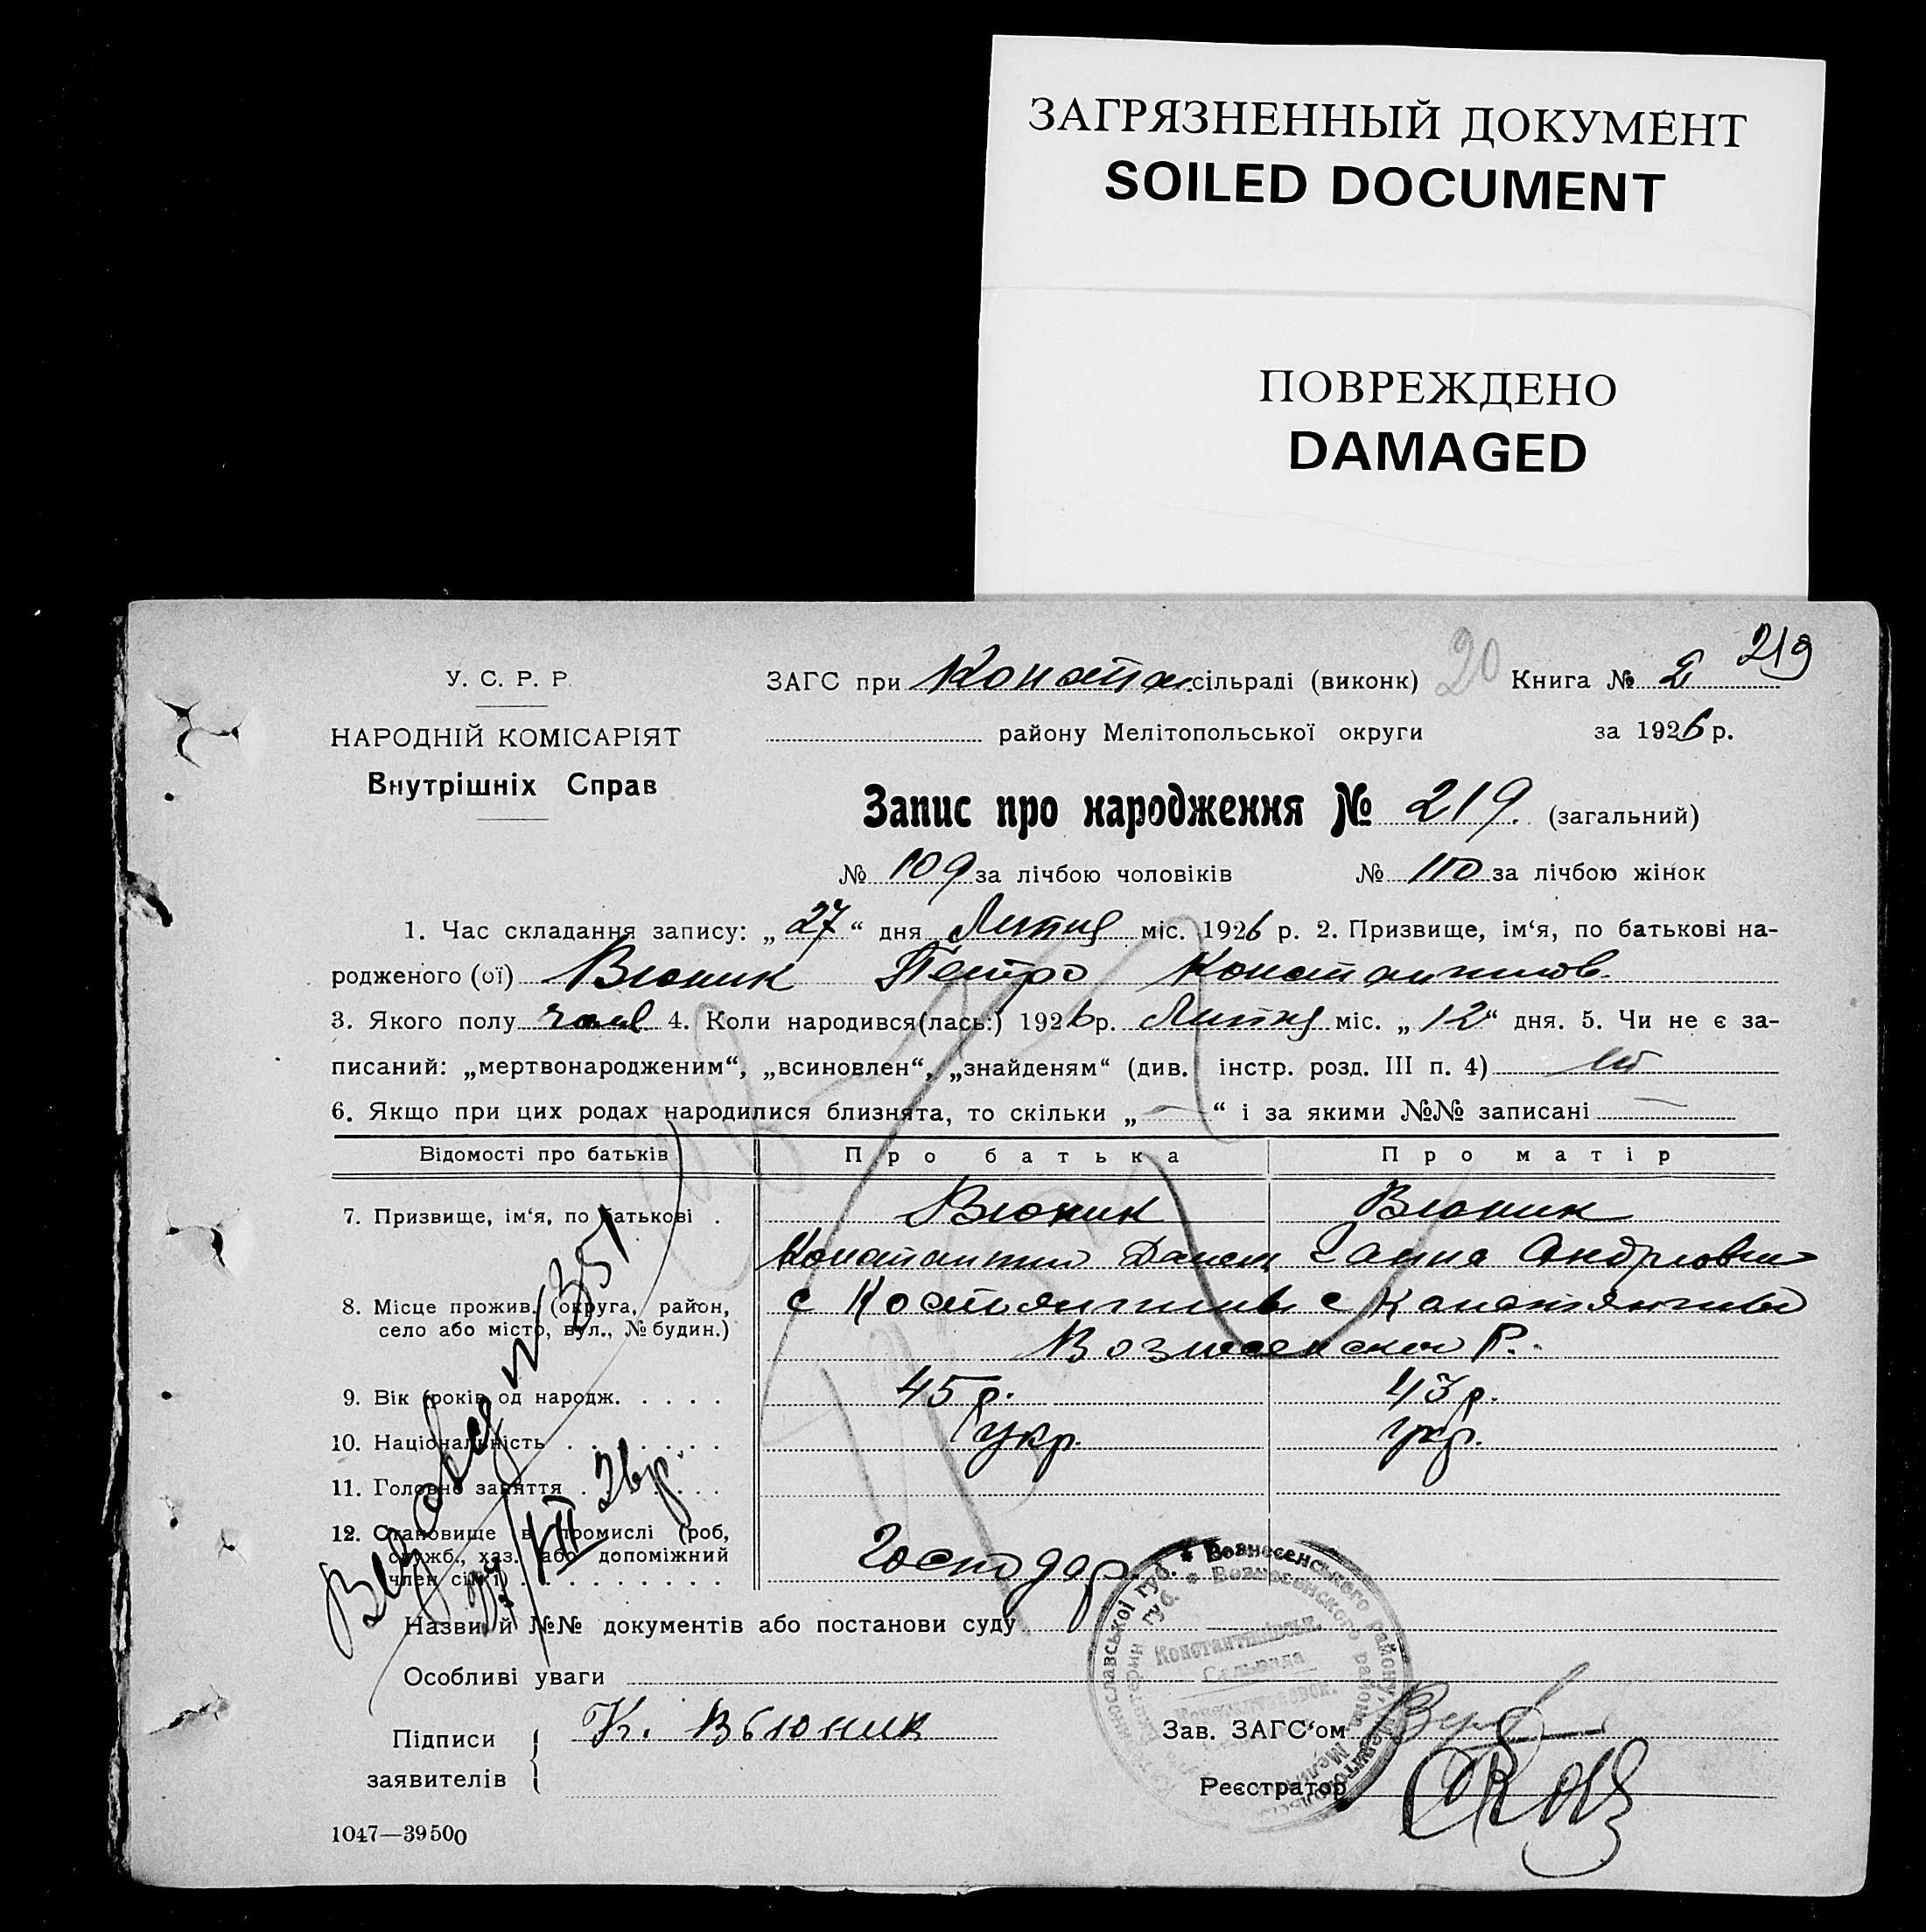 ЗАГРЯЗНЕННЫЙ ДОКУМЕНТ
SOILED DOCUMENT
ПОВРЕЖДЕНО
DAMAGED
219
20
У. С. Р. Р.
НАРОДНІЙ КОМІСАРІЯТ
Внутрішніх Справ
ЗАГС при Конста. сільраді (виконк) Книга №
району Мелітопольської округи за 1926 р.
Запис про народження № 219. (загальний)
№ 109 за лічбою чоловіків № 110 за лічбою жінок
1. Час складання запису: „27“ дня Липня міс. 1926 р. 2. Призвище, ім‘я, по батькові на-
родженого (ої) Вюник Петро Константинов.
3. Якого полу 4. Коли народився(лась:) 1926 р. Липня міс. „12“ дня. 5. Чи не є за-
писаний: „мертвонародженим“, „всиновлен“, „знайденям“ (див. інстр. розд. III п. 4) ні
6. Якщо при цих родах народилися близнята, то скільки „—“ і за якими №№ записані —
Відомості про батьків Про батька Про матір
7. Призвище, ім‘я, по батькові . Вюник Вюник
Константин Ганна Андріовна
8. Місце прожив. (округа, район, с с
село або місто, вул., № будин.) Вознесенской Р.
9. Вік (років од народж. . . . . 45 р. 43 р.
10. Національність . . . . . . . укр. укр.
11. Головне заняття . . . . . .
12. Становище в промислі (роб,
служб., хаз. або допоміжний Господар.
член сім‘ї) . . . . . . . . . .
№ 351
VII 26 р.
Назви й №№ документів або постанови суду
Особливі уваги
Вознесенського району
Константинівськ.
Підписи К. Вьюник Зав. ЗАГС‘ом
заявителів Реєстратор
1047—39500